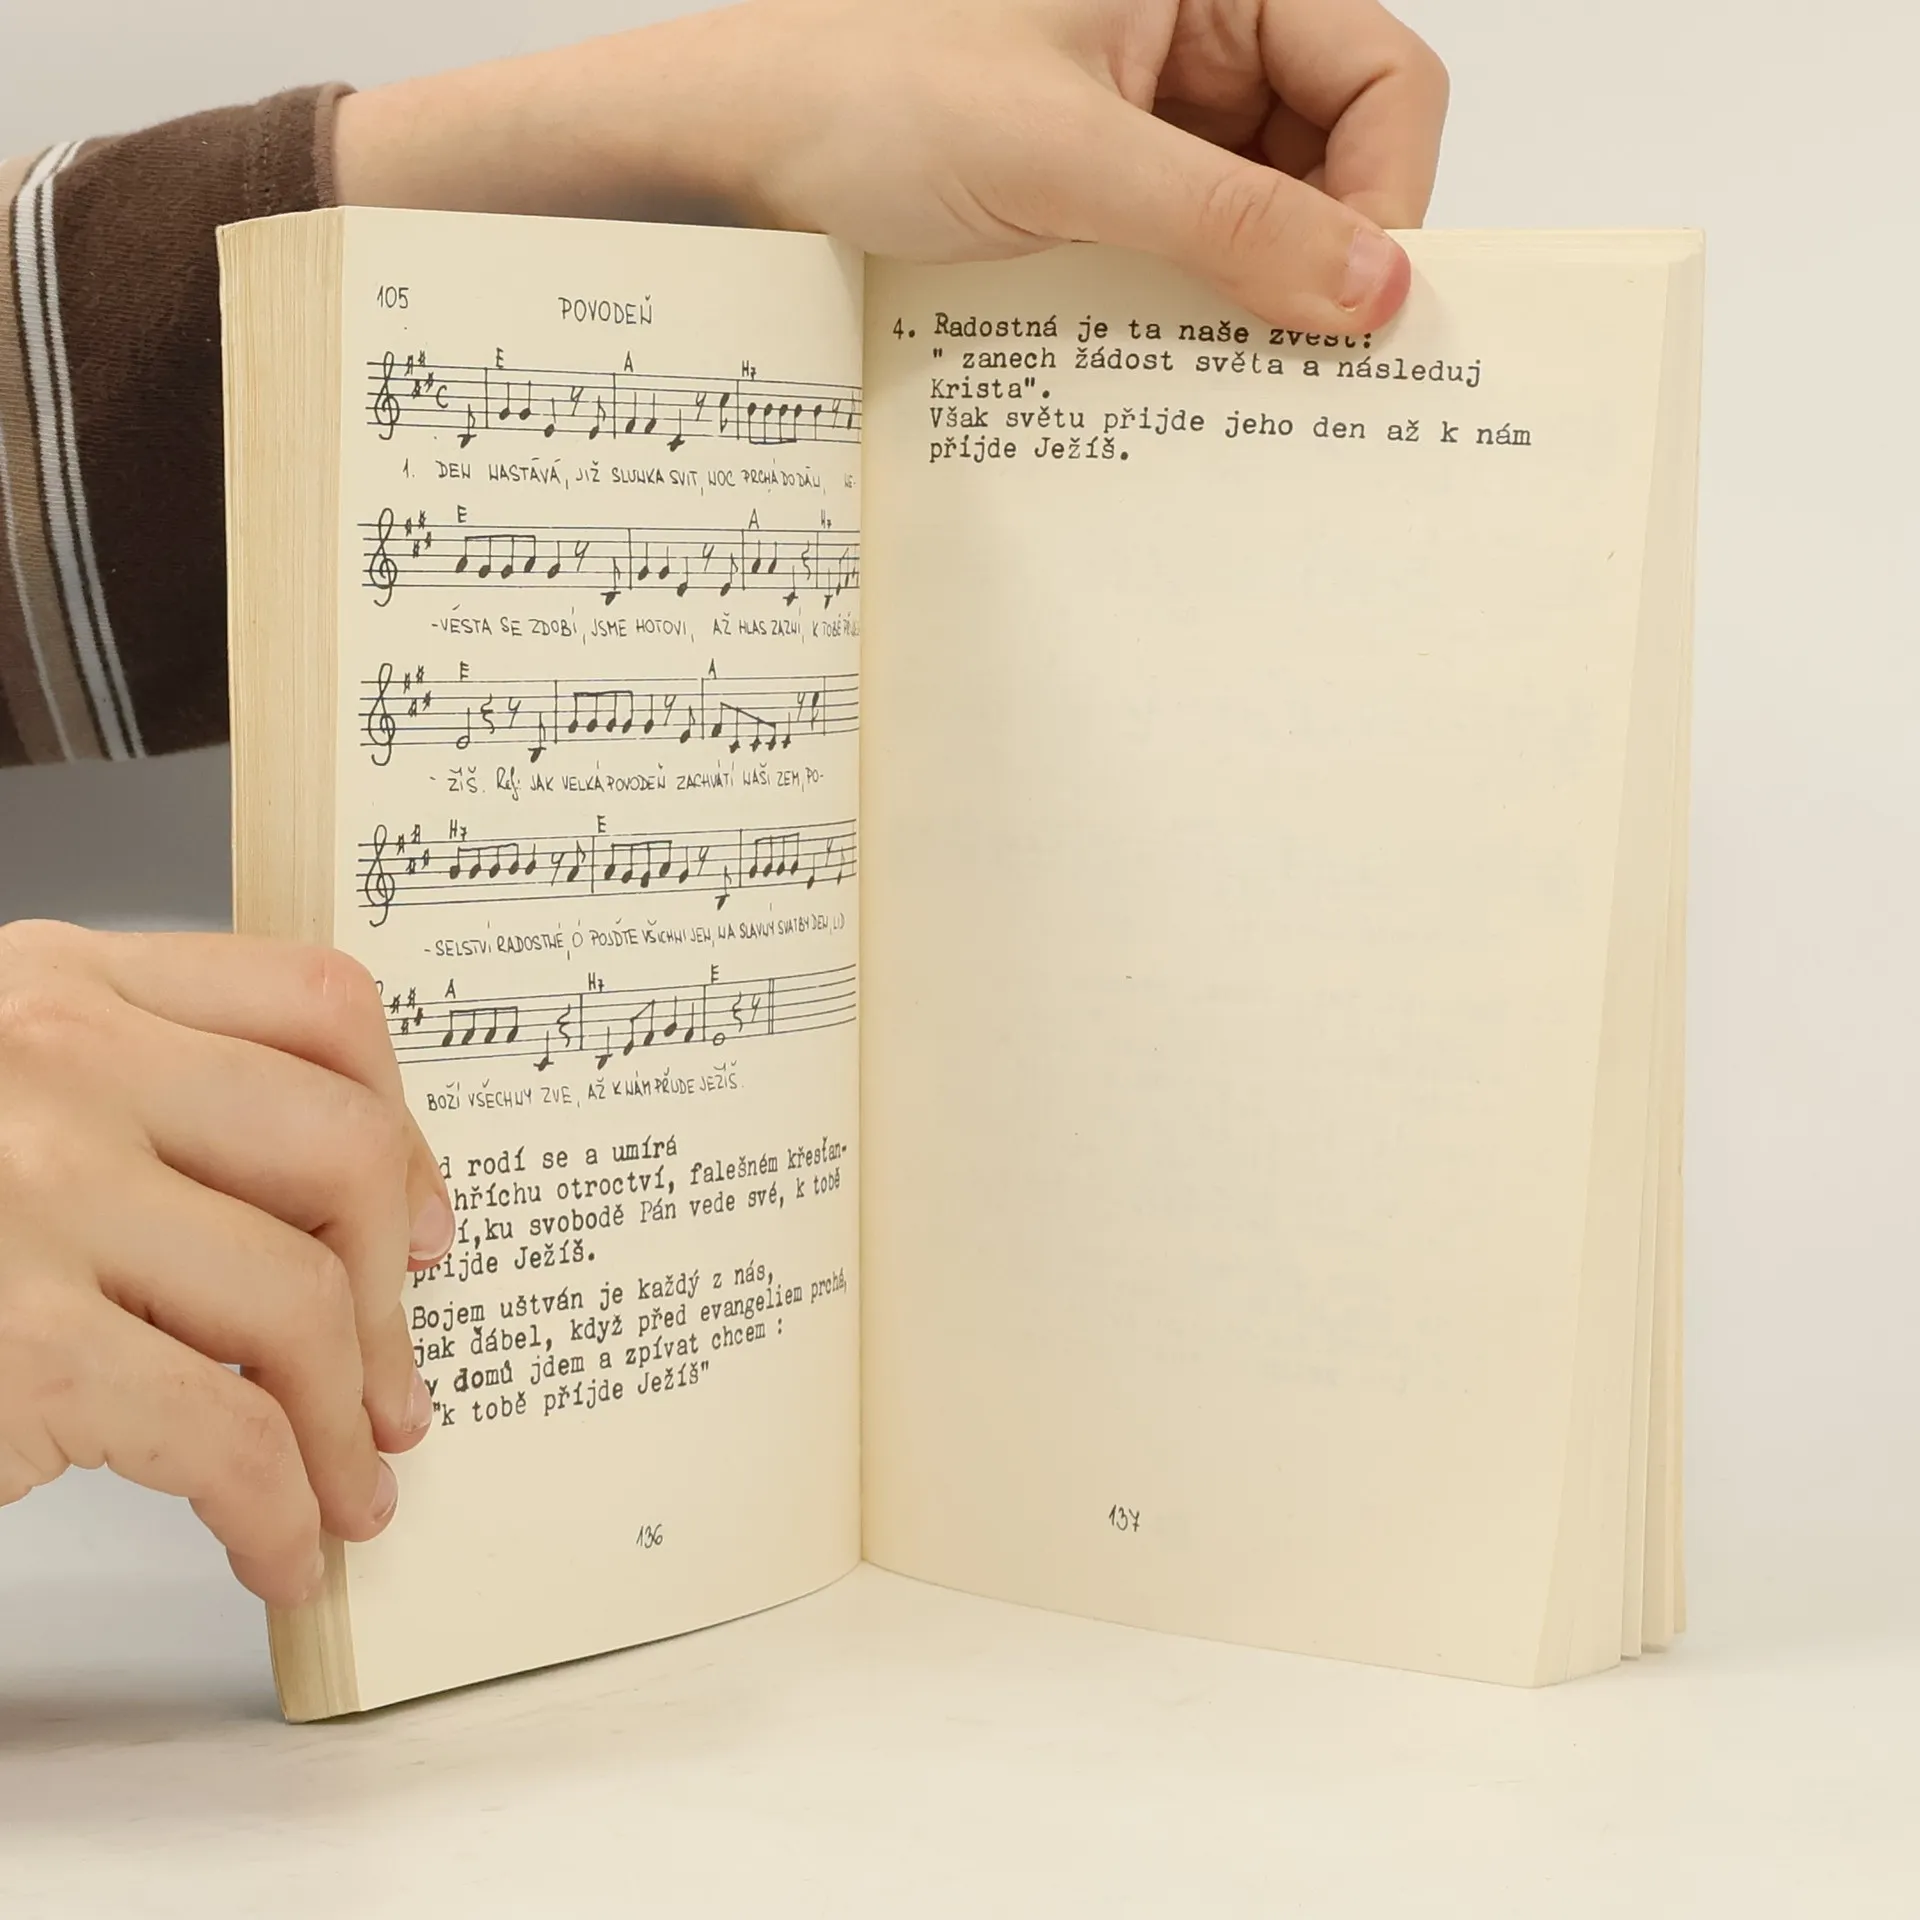 105
POVODEŇ
E A H7
C
1. DEN NASTÁVÁ, JIŽ SLUNKA SVIT, NOC PRCHÁ DO DÁLI, NE-
E A H7
-VĚSTA SE ZDOBÍ, JSME HOTOVI, AŽ HLAS ZAZNÍ, K TOBĚ
E A
- ŽÍŠ. Ref: JAK VELKÁ POVODEŇ ZACHVÁTÍ NAŠI ZEM, PO-
H7 E
-SELSTVÍ RADOSTNÉ, Ó POJĎTE VŠICHNI JEN, NA SLAVNÝ SVATBY DEN, LID
A H7 E
BOŽÍ VŠECHNY ZVE, AŽ K NÁM PŘIJDE JEŽÍŠ.
d rodí se a umírá
hříchu otroctví, falešném křesťan-
í,ku svobodě Pán vede své, k tobě
přijde Ježíš.
Bojem uštván je každý z nás,
jak ďábel, když před evangeliem prchá,
v domů jdem a zpívat chcem :
"k tobě příjde Ježíš"
136
4. Radostná je ta naše zvěst:
" zanech žádost světa a následuj
Krista".
Však světu přijde jeho den až k nám
příjde Ježíš.
137